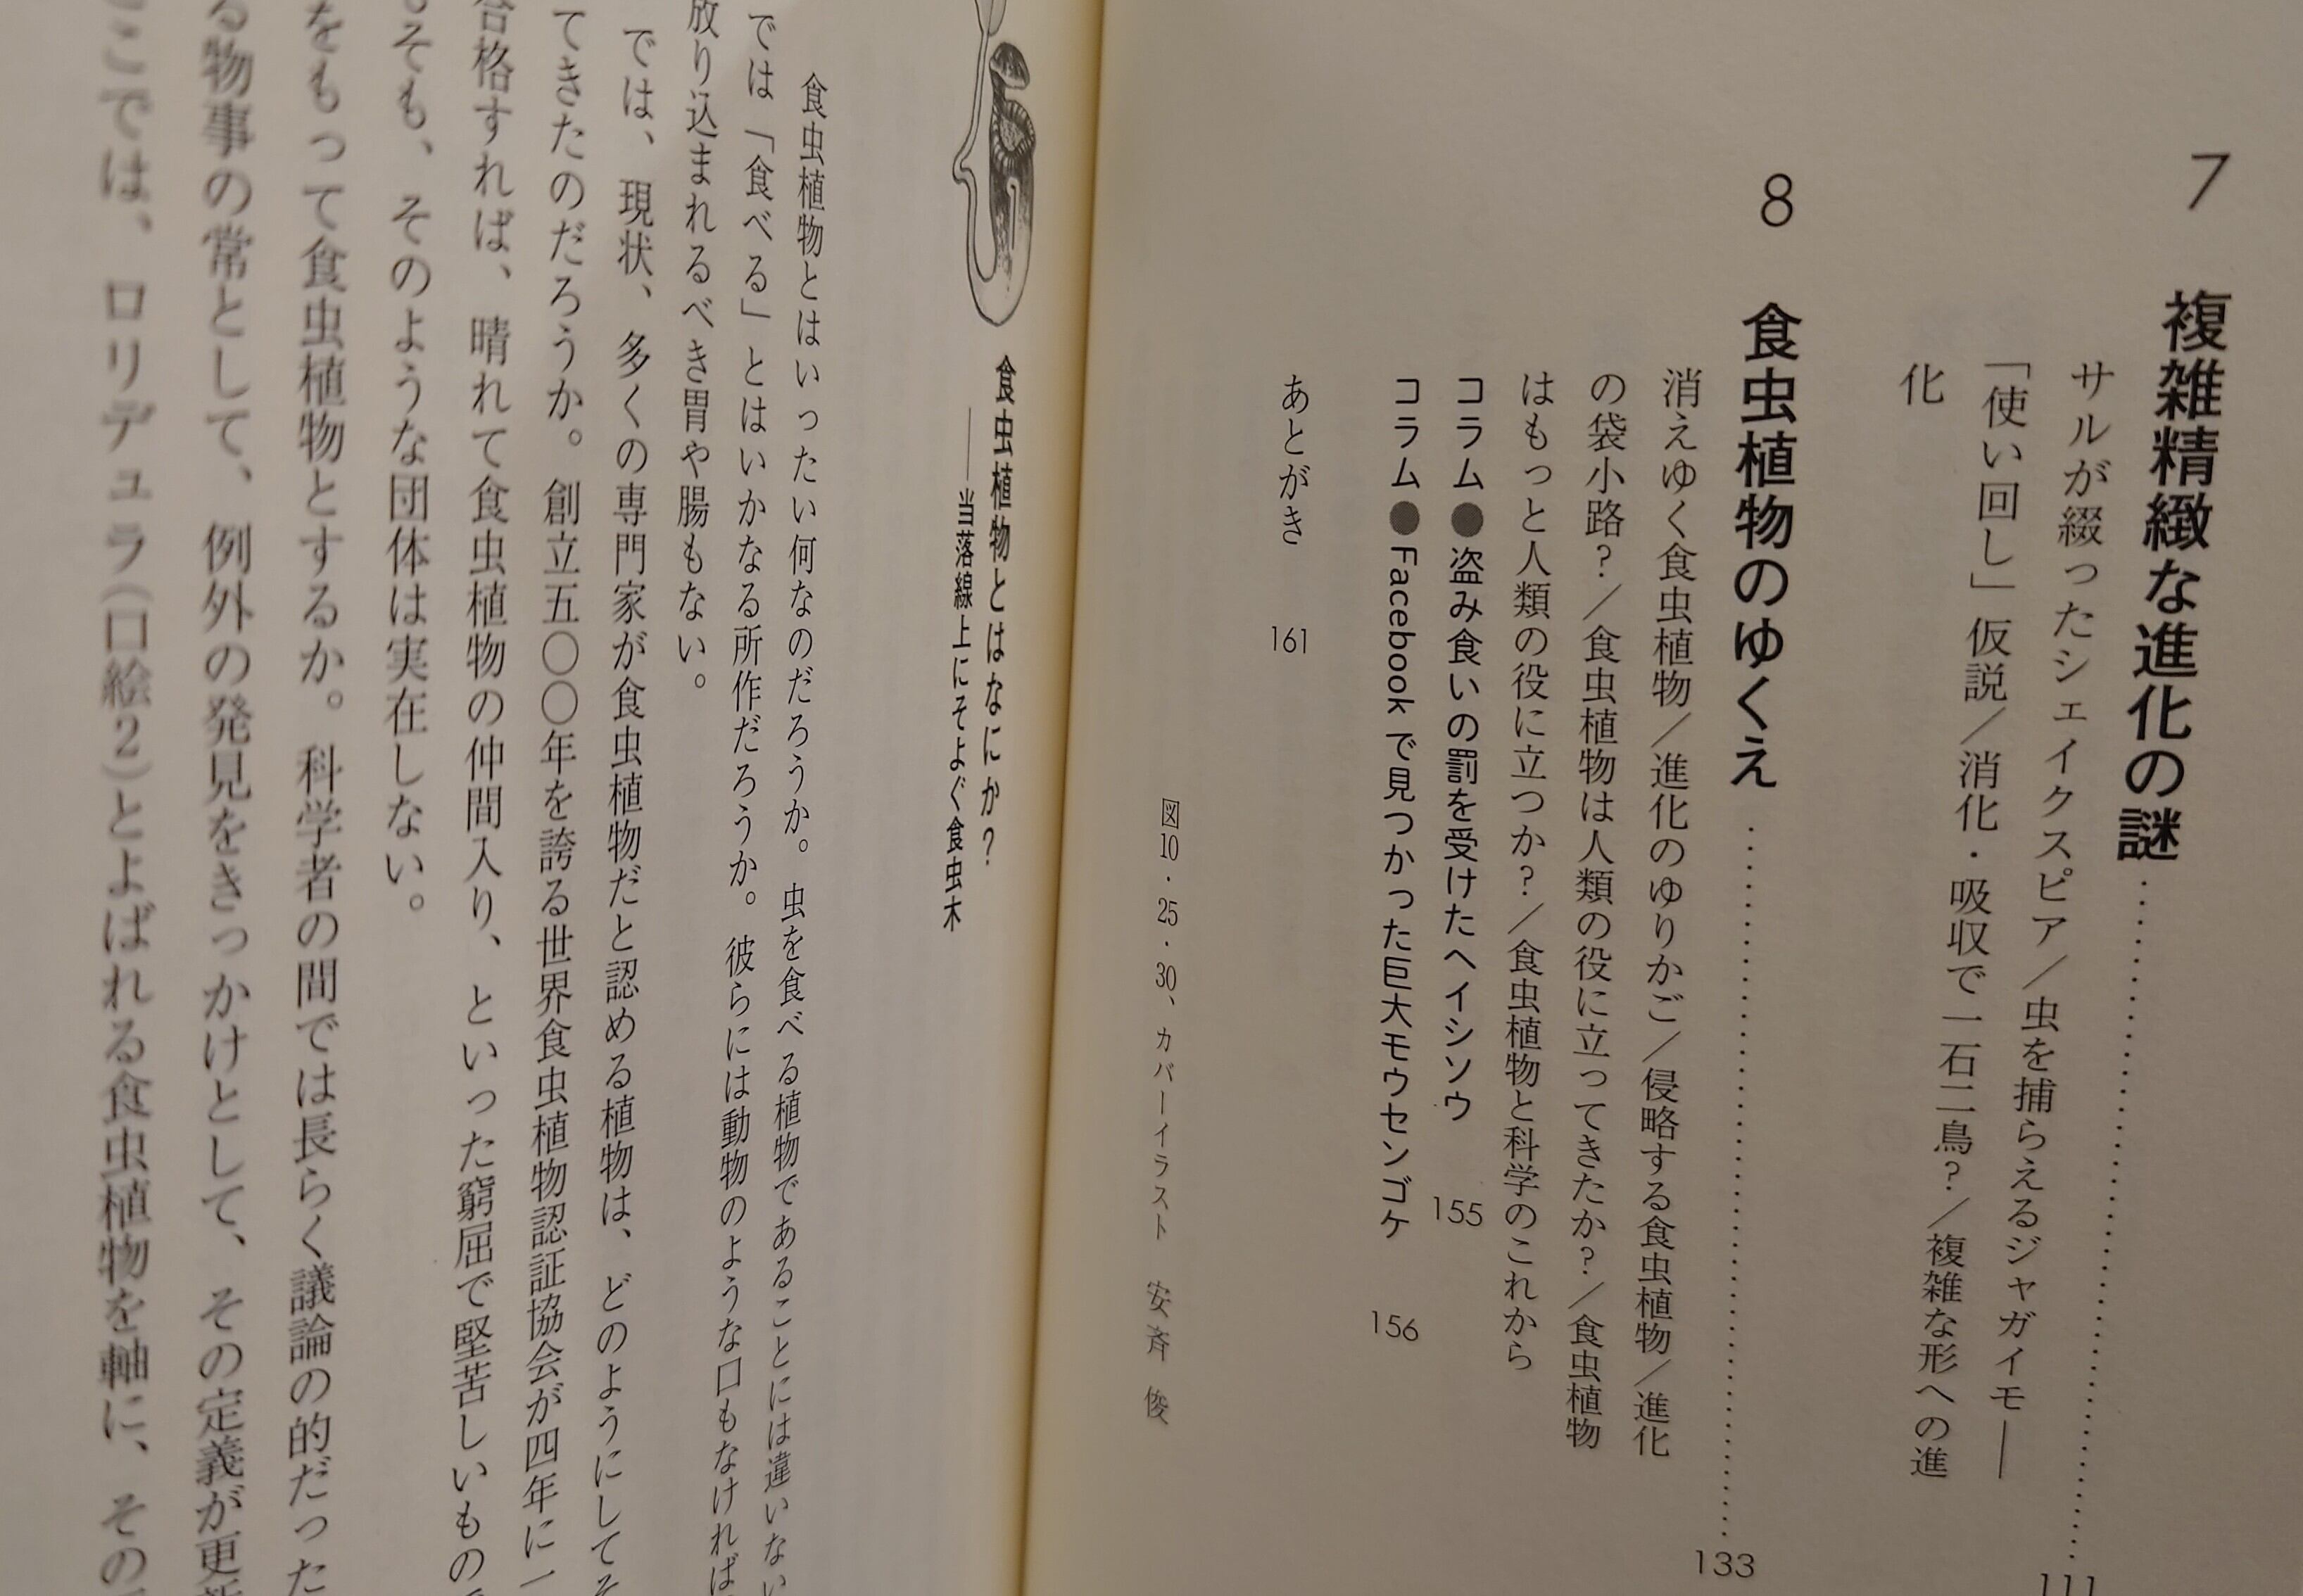 7 複雑精緻な進化の謎 ………… 111
サルが綴ったシェイクスピア／虫を捕らえるジャガイモ――
「使い回し」仮説／消化・吸収で一石二鳥？／複雑な形への進
化
8 食虫植物のゆくえ ………… 133
消えゆく食虫植物／進化のゆりかご／侵略する食虫植物／進化
の袋小路？／食虫植物は人類の役に立ってきたか？／食虫植物
はもっと人類の役に立つか？／食虫植物と科学のこれから
コラム●盗み食いの罰を受けたヘイシソウ 155
コラム●Facebookで見つかった巨大モウセンゴケ 156
あとがき 161
図10・25・30、カバーイラスト 安斉 俊
食虫植物とはなにか？
――当落線上にそよぐ食虫木
食虫植物とはいったい何なのだろうか。虫を食べる植物であることには違いない
では「食べる」とはいかなる所作だろうか。彼らには動物のような口もなければ
放り込まれるべき胃や腸もない。
では、現状、多くの専門家が食虫植物だと認める植物は、どのようにしてそ
てきたのだろうか。創立五〇〇年を誇る世界食虫植物認証協会が四年に一
合格すれば、晴れて食虫植物の仲間入り、といった窮屈で堅苦しいもの
そも、そのような団体は実在しない。
をもって食虫植物とするか。科学者の間では長らく議論の的だった
る物事の常として、例外の発見をきっかけとして、その定義が更新
こでは、ロリデュラ（口絵2）とよばれる食虫植物を軸に、その